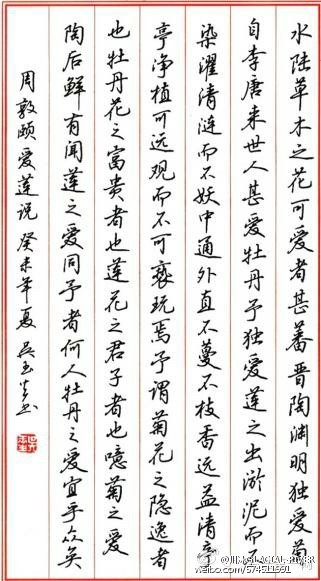 水陆草木之花可爱者甚蕃晋陶渊明独爱菊
自李唐来世人甚爱牡丹予独爱莲之出淤泥而不
染濯清涟而不妖中通外直不蔓不枝香远益清亭
亭净植可远观而不可亵玩焉予谓菊花之隐逸者
也牡丹花之富貴者也莲花之君子者也噫菊之爱
陶后鲜有闻莲之爱同予者何人牡丹之爱宜乎众矣
周敦颐爱莲说 癸未年夏 吴玉生书